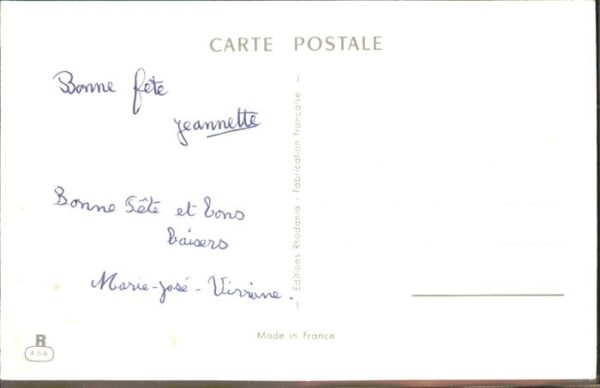 CARTE POSTALE
Bonne fête
Jeannette
Bonne Fête et bons
baisers
Marie-José - Viviane.
Editions Rhodania - Fabrication française
Made in France
R